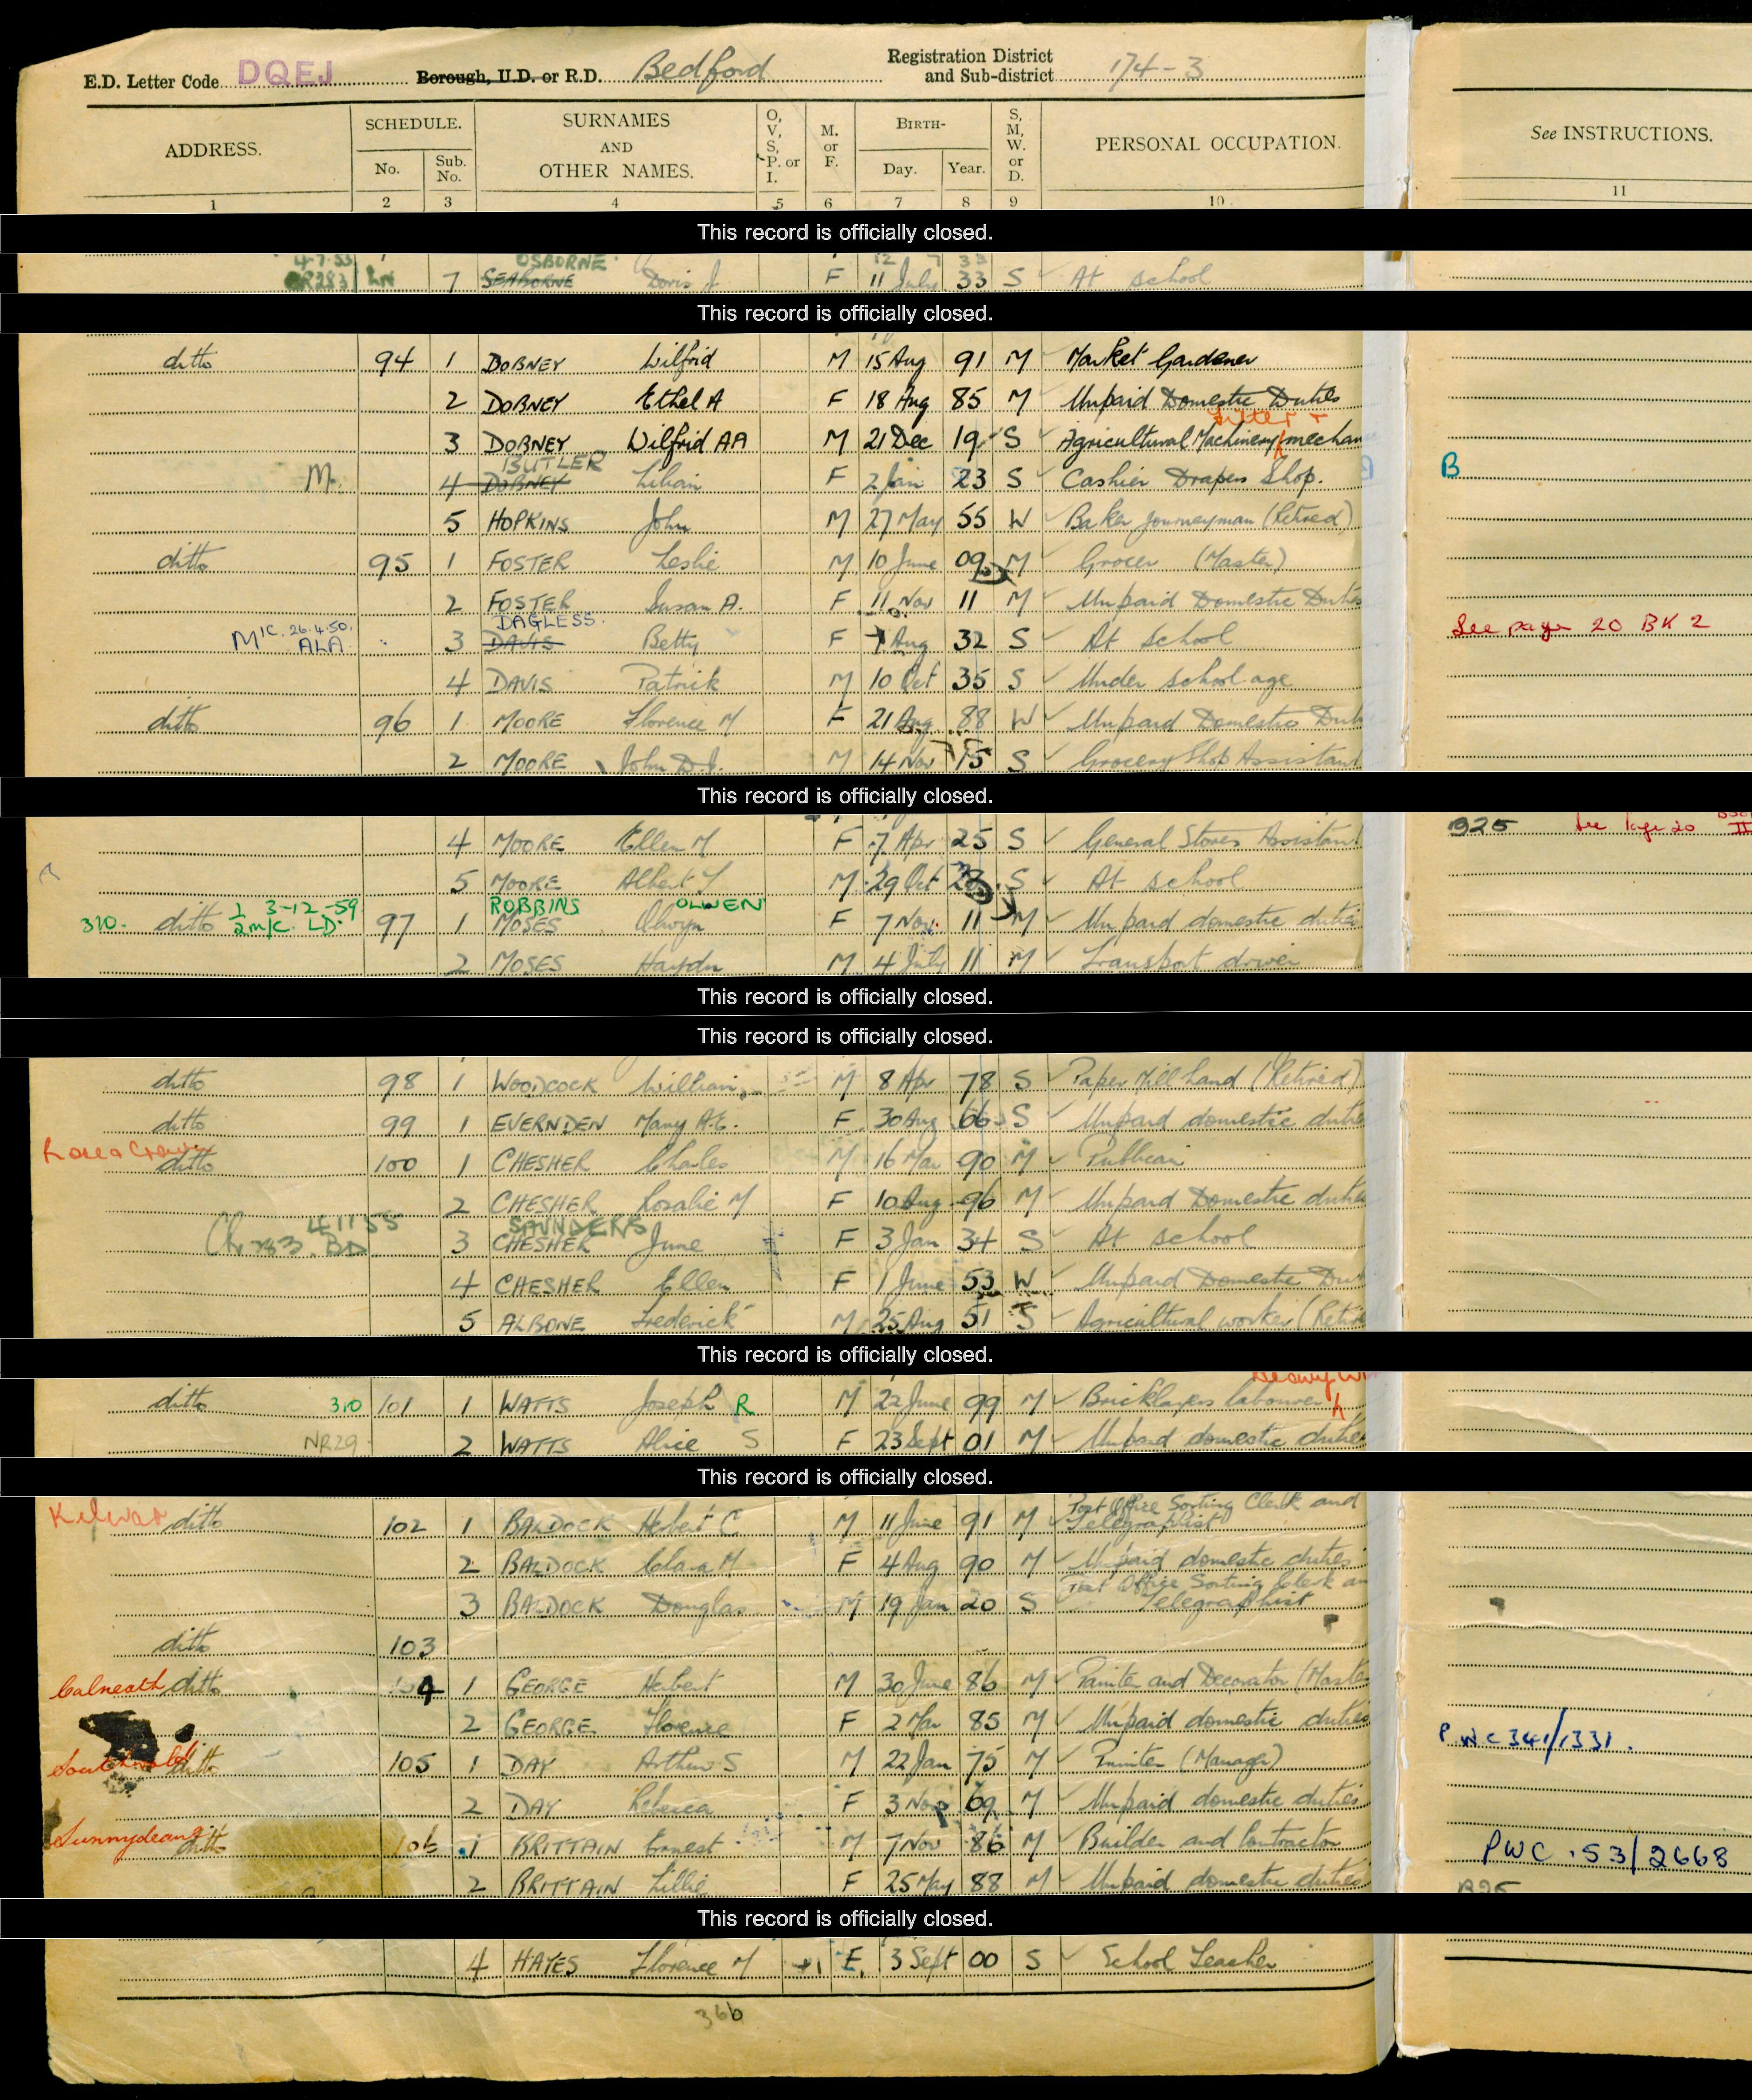 E.D. Letter Code DQEJ Borough, U.D. or R.D. Bedford Registration District and Sub-district 174-3
ADDRESS. SCHEDULE. No. Sub. No. SURNAMES AND OTHER NAMES. O, V, S, P. or I. M. or F. BIRTH- Day. Year. S, M, W. or D. PERSONAL OCCUPATION. See INSTRUCTIONS.
1 2 3 4 5 6 7 8 9 10 11
This record is officially closed.
4-7-53 OSBORNE 12 7 33
7 SEABORNE Doris J F 11 July 33 S At school
This record is officially closed.
ditto 94 1 DOBNEY Wilfrid M 15 Aug 91 M Market Gardener
2 DOBNEY Ethel A F 18 Aug 85 M Unpaid Domestic Duties
fitter +
3 DOBNEY Wilfrid AA M 21 Dec 19 S Agricultural Machinery mechan
BUTLER
M. 4 DOBNEY Lilian F 2 Jan 23 S Cashier Drapers Shop. B
5 HOPKINS John M 27 May 55 W Baker Journeyman (Retired)
ditto 95 1 FOSTER Leslie M 10 June 09 M Grocer (Master)
2 FOSTER Susan A. F 11 Nov 11 M Unpaid Domestic Duties
M/C. 26.4.50. ALA. DAGLESS.
3 DAVIS Betty F 7 Aug 32 S At school See page 20 BK 2
4 DAVIS Patrick M 10 Oct 35 S Under school age
ditto 96 1 MOORE Florence M F 21 Aug 88 W Unpaid Domestic Dut
2 MOORE John D.J. M 14 Nov 15 S Grocery Shop Assistant
This record is officially closed.
4 MOORE Ellen M F 7 Apr 25 S General Stores Assistant B25 See Page 20 BOOK II
5 MOORE Albert M 29 Oct S At school
3-12-59 ROBBINS OLWEN
310. ditto 1/2 m/c. LD. 97 1 MOSES Olwyn F 7 Nov. 11 M Unpaid domestic duties
2 MOSES Haydn M 4 July 11 M Transport driver
This record is officially closed.
This record is officially closed.
ditto 98 1 WOODCOCK William M 8 Apr 78 S Paper Mill hand (Retired)
ditto 99 1 EVERNDEN Mary A.E. F 30 Aug 66 S Unpaid domestic duties
Rose & Crown
ditto 100 1 CHESHER Charles M 16 Mar 90 M Publican
2 CHESHER Rosalie M F 10 Aug 96 M Unpaid Domestic duties
41155 SAUNDERS
3 CHESHER June F 3 Jan 34 S At school
4 CHESHER Ellen F 1 June 53 W Unpaid Domestic Dut
5 ALBONE Frederick M 25 Aug 51 S Agricultural worker (Retire
This record is officially closed.
ditto 310 101 1 WATTS Joseph R M 22 June 99 M Bricklayers labourer
NR29 2 WATTS Alice S F 23 Sept 01 M Unpaid domestic duties
This record is officially closed.
ditto 102 1 BALDOCK Herbert C. M 11 June 91 M Post Office Sorting Clerk and Telegraphist
2 BALDOCK Clara M F 4 Aug 90 M Unpaid domestic duties
3 BALDOCK Douglas M 19 Jan 20 S Post Office Sorting Clerk an Telegraphist
ditto 103
Calneath ditto 104 1 GEORGE Herbert M 30 June 86 M Painter and Decorator (Maste
2 GEORGE Florence F 2 Mar 85 M Unpaid domestic duties PWC341/1331.
ditto 105 1 DAY Arthur S M 22 Jan 75 M Printer (Manager)
2 DAY Rebecca F 3 Nov 69 M Unpaid domestic duties
Sunnydean ditto 106 1 BRITTAIN Ernest M 7 Nov 86 M Builder and Contractor PWC .53/2668
2 BRITTAIN Lillie F 25 May 88 M Unpaid domestic duties B25
This record is officially closed.
4 HAYES Florence M F. 3 Sept 00 S School Teacher
36b